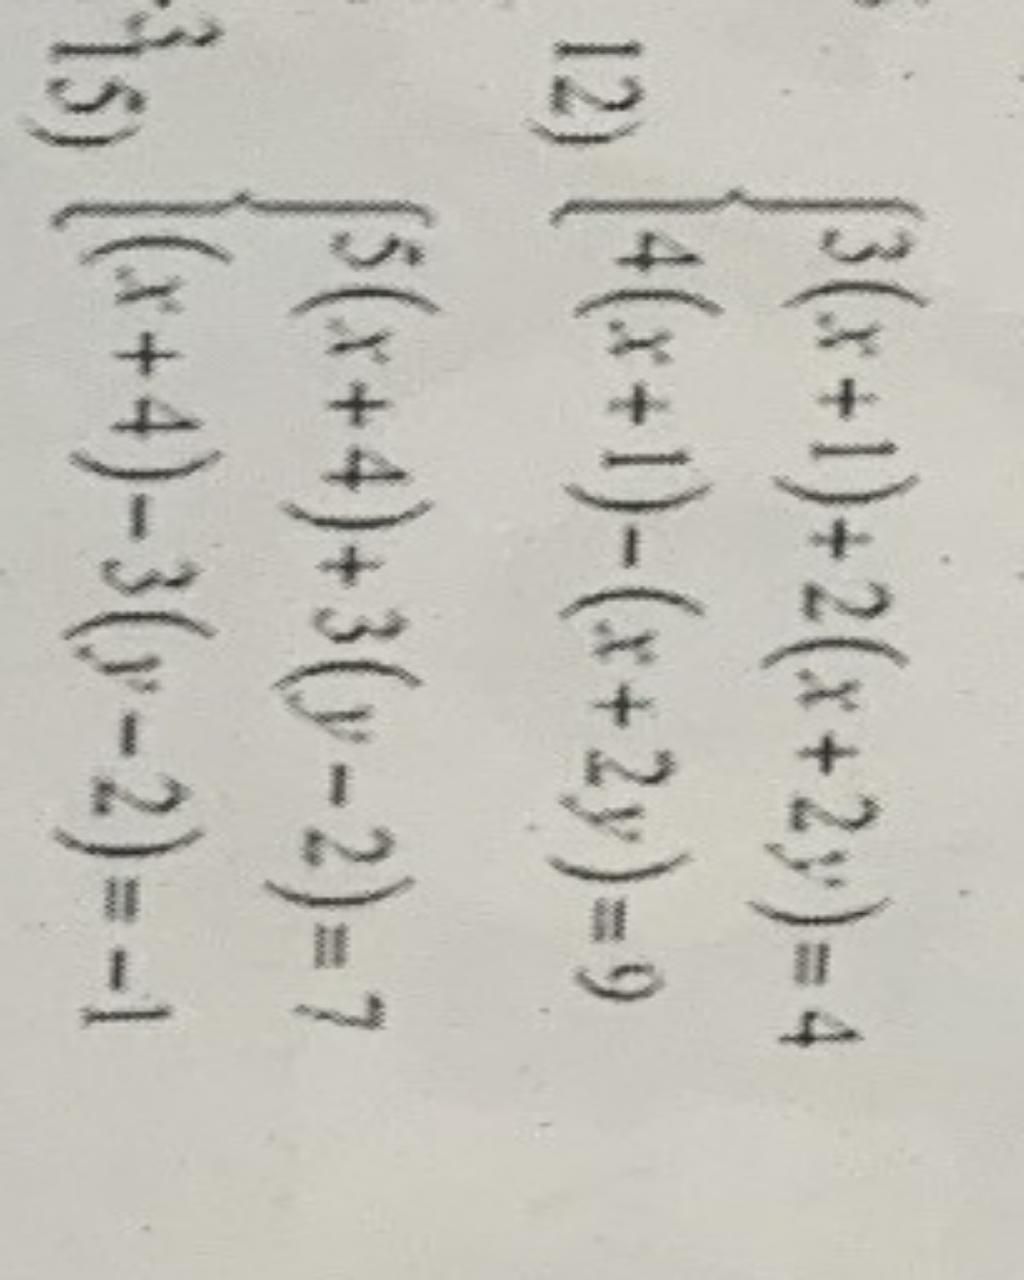 12) { 3(x + 1) + 2(x + 2y) = 4
4(x + 1) - (x + 2y) = 9
15) { 5(x + 4) + 3(y - 2) = 7
(x + 4) - 3(y - 2) = -1